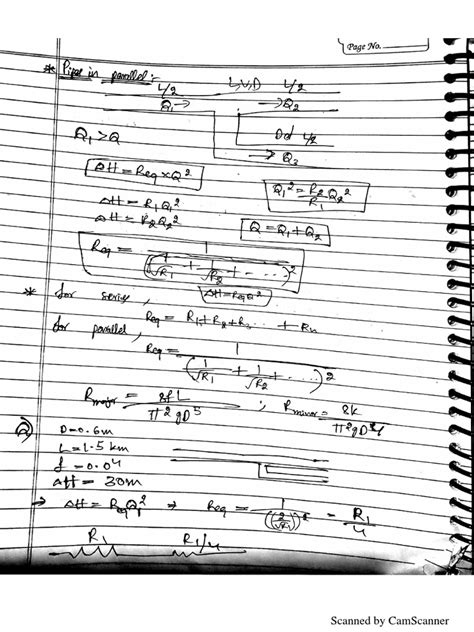 Page No.
* Pipes in parallel :-
L/2 L,V,D L/2
Q₁ → → Q₂
Dd L/2
→ Q₃
Q₁ > Q
ΔH = Req × Q²
Q₁² = R₂/R₁ Q₂²
ΔH = R₁Q₁²
ΔH = R₂Q₂²
Q = Q₁ + Q₂
Req = 1/(1/√R₁ + 1/√R₂ + - ...)²
ΔH = ReqQ²
* for series,
Req = R₁ + R₂ + R₃ ... + Rn
for parallel,
Req = 1/(1/√R₁ + 1/√R₂ + ...)²
Rmajor = 8fL/π²gD⁵ ; Rminor = 8k/π²gD⁴
Q) D = 0.6m
L = 1.5 km
f = 0.04
ΔH = 30m
→ ΔH = ReqQ₁² → Req = 1/(2/√R₁)² = R₁/4
R₁ R₁/4
Scanned by CamScanner